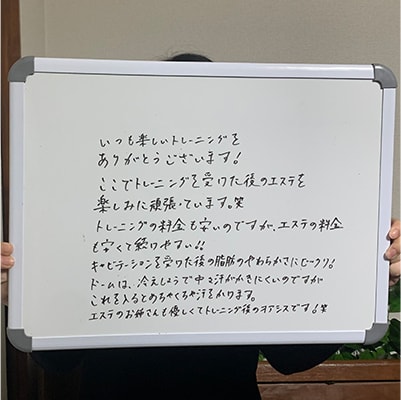 いつも楽しいトレーニングを
ありがとうございます!
ここでトレーニングを受けた後のエステを
楽しみに頑張っています。笑
トレーニングの料金も安いのですが、エステの料金
も安くて
キャビテーションを受けた後の脂肪のやわらかさにビックリ!
ドームは、冷えしょうで中々汗がかきにくいのですが
これを入るとめちゃくちゃ汗をかります。
エステのお姉さんも優しくてトレーニング後のオアシスです!笑